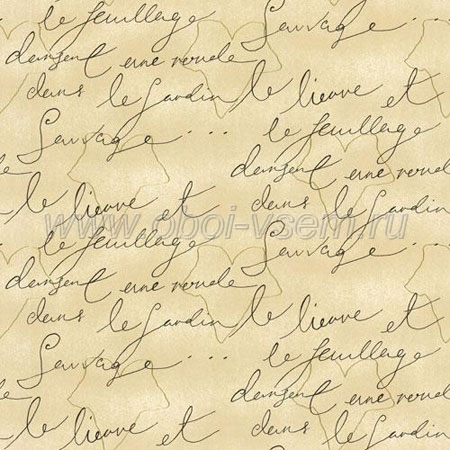 le feuillage Sauvage ...
dansent une ronde
dans le Jardin le lierre et
Sauvage ... le feuillage
dansent une ronde
le lierre et dans le Jardin
www.oboi-vsem.ru
le feuillage Sauvage ...
dansent une ronde
dans le Jardin le lierre et
Sauvage ... le feuillage
dansent une ronde
le lierre et dans le Jardin